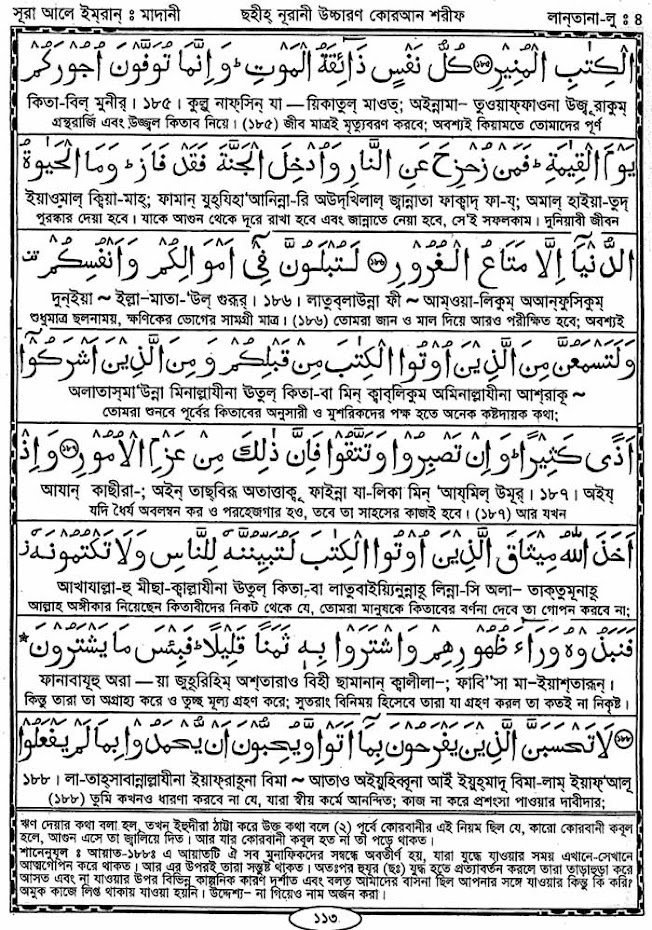 সূরা আলে ইম্‌রান্ ঃ মাদানী ছহীহ্ নূরানী উচ্চারণ কোরআন শরীফ লান্‌তানা-লু ঃ ৪
الْكِتٰبِ الْمُنِيْرِ ۝١٨٥ كُلُّ نَفْسٍ ذَآئِقَةُ الْمَوْتِ ؕ وَاِنَّمَا تُوَفَّوْنَ اُجُوْرَكُمْ
কিতা-বিল্ মুনীর্। ১৮৫। কুল্লু নাফ্‌সিন্ যা — য়িকাতুল্ মাওত্; অইন্নামা– তুওয়াফ্ফাওনা উজূ্রাকুম্
গ্রন্থরাজি এবং উজ্জ্বল কিতাব নিয়ে। (১৮৫) জীব মাত্রই মৃত্যুবরণ করবে; অবশ্যই কিয়ামতে তোমাদের পূর্ণ
يَوْمَ الْقِيٰمَةِ ؕ فَمَنْ زُحْزِحَ عَنِ النَّارِ وَاُدْخِلَ الْجَنَّةَ فَقَدْ فَازَ ؕ وَمَا الْحَيٰوةُ
ইয়াওমাল্ ক্বিয়া-মাহ্; ফামান্ যুহ্‌যিহা'আনিন্না-রি অউদ্‌খিলাল্ জ্বান্নাতা ফাক্বাদ্ ফা-য্; অমাল্ হাইয়া-তুদ্
পুরস্কার দেয়া হবে। যাকে আগুন থেকে দূরে রাখা হবে এবং জান্নাতে নেয়া হবে, সে'ই সফলকাম। দুনিয়াবী জীবন
الدُّنْيَاۤ اِلَّا مَتَاعُ الْغُرُوْرِ ۝١٨٦ لَتُبْلَوُنَّ فِيْۤ اَمْوَالِكُمْ وَاَنْفُسِكُمْ قف
দুন্‌ইয়া ~ ইল্লা–মাতা-'উল্ গুরূর্। ১৮৬। লাতুব্‌লাউন্না ফী ~ আম্‌ওয়া-লিকুম্ অআন্‌ফুসিকুম্
শুধুমাত্র ছলনাময়, ক্ষণিকের ভোগের সামগ্রী মাত্র। (১৮৬) তোমরা জান ও মাল দিয়ে আরও পরীক্ষিত হবে; অবশ্যই
وَلَتَسْمَعُنَّ مِنَ الَّذِيْنَ اُوْتُوا الْكِتٰبَ مِنْ قَبْلِكُمْ وَمِنَ الَّذِيْنَ اَشْرَكُوْۤا
অলাতাস্‌মা'উন্না মিনাল্লাযীনা ঊতুল্ কিতা-বা মিন্ ক্বাব্‌লিকুম অমিনাল্লাযীনা আশ্‌রাকূ ~
তোমরা শুনবে পূর্বের কিতাবের অনুসারী ও মুশরিকদের পক্ষ হতে অনেক কষ্টদায়ক কথা;
اَذًى كَثِيْرًا ؕ وَاِنْ تَصْبِرُوْا وَتَتَّقُوْا فَاِنَّ ذٰلِكَ مِنْ عَزْمِ الْاُمُوْرِ ۝١٨٧ وَاِذْ
আযান্ কাছীরা-; অইন্ তাছ্‌বিরূ অতাত্তাকূ ফাইন্না যা-লিকা মিন্ 'আয্‌মিল্ উমূর্। ১৮৭। অইয্
যদি ধৈর্য অবলম্বন কর ও পরহেজগার হও, তবে তা সাহসের কাজই হবে। (১৮৭) আর যখন
اَخَذَ اللّٰهُ مِيْثَاقَ الَّذِيْنَ اُوْتُوا الْكِتٰبَ لَتُبَيِّنُنَّهٗ لِلنَّاسِ وَلَا تَكْتُمُوْنَهٗ ز
আখাযাল্লা-হু মীছা-ক্বাল্লাযীনা ঊতুল্ কিতা-বা লাতুবাইয়্যিনুন্নাহূ লিন্না-সি অলা– তাক্‌তুমূনাহূ
আল্লাহ অঙ্গীকার নিয়েছেন কিতাবীদের নিকট থেকে যে, তোমরা মানুষকে কিতাবের বর্ণনা দেবে তা গোপন করবে না;
فَنَبَذُوْهُ وَرَآءَ ظُهُوْرِهِمْ وَاشْتَرَوْا بِهٖ ثَمَنًا قَلِيْلًا ؕ فَبِئْسَ مَا يَشْتَرُوْنَ
ফানাবাযূহু অরা — য়া জুহূরিহিম্ অশ্‌তারাও বিহী ছামানান্ ক্বালীলা-; ফাবি''সা মা–ইয়াশ্‌তারূন্।
কিন্তু তারা তা অগ্রাহ্য করে ও তুচ্ছ মূল্য গ্রহণ করে; সুতরাং বিনিময় হিসেবে তারা যা গ্রহণ করল তা কতই না নিকৃষ্ট।
۝١٨٨ لَا تَحْسَبَنَّ الَّذِيْنَ يَفْرَحُوْنَ بِمَاۤ اَتَوْا وَّيُحِبُّوْنَ اَنْ يُّحْمَدُوْا بِمَا لَمْ يَفْعَلُوْا
১৮৮। লা-তাহ্‌সাবান্নাল্লাযীনা ইয়াফ্‌রাহূনা বিমা ~ আতাও অইয়ুহিব্বূনা আইঁ ইয়ুহ্‌মাদূ বিমা-লাম্ ইয়াফ্‌'আলূ
(১৮৮) তুমি কখনও ধারণা করবে না যে, যারা স্বীয় কর্মে আনন্দিত; কাজ না করে প্রশংসা পাওয়ার দাবীদার;
ঋণ দেয়ার কথা বলা হল, তখন ইহুদীরা ঠাট্টা করে উক্ত কথা বলে (২) পূর্বে কোরবানীর এই নিয়ম ছিল যে, কারো কোরবানী কবুল
হলে, আগুন এসে তা জ্বালিয়ে দিত। আর যার কোরবানী কবুল হত না তা পড়ে থাকত।
শানেনুযূল ঃ আয়াত-১৮৮ঃ এ আয়াতটি ঐ সব মুনাফিকদের সম্বন্ধে অবতীর্ণ হয়, যারা যুদ্ধে যাওয়ার সময় এখানে-সেখানে
আত্মগোপন করে থাকত। আর এর উপরই তারা সন্তুষ্ট থাকত। অতঃপর হুযুর (ছঃ) যুদ্ধ হতে প্রত্যাবর্তন করলে তারা তাড়াহুড়া করে
আসত এবং না যাওয়ার উপর বিভিন্ন কাল্পনিক কারণ দর্শাত এবং বলত আমাদের বাসনা ছিল আপনার সঙ্গে যাওয়ার কিন্তু কি করি?
অমুক কাজে লিপ্ত থাকায় যাওয়া হয়নি। উদ্দেশ্য– না গিয়েও নাম অর্জন করা।
১১৩